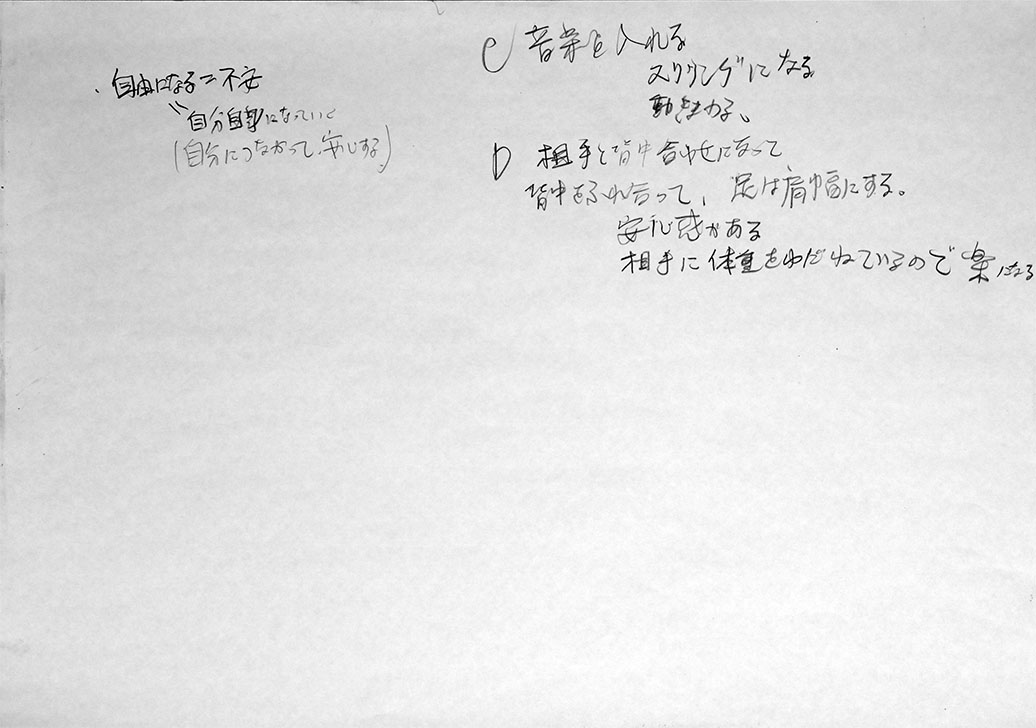 ・自由になる＝不安
〃自分自身になっていく
(自分につながって、安心する)
C 音楽を入れる
スリリングになる
動きまわる、
D 相手と背中合せになって
背中をふれ合って、足は肩幅にする。
安心感がある
相手に体重をゆだねているので楽になる